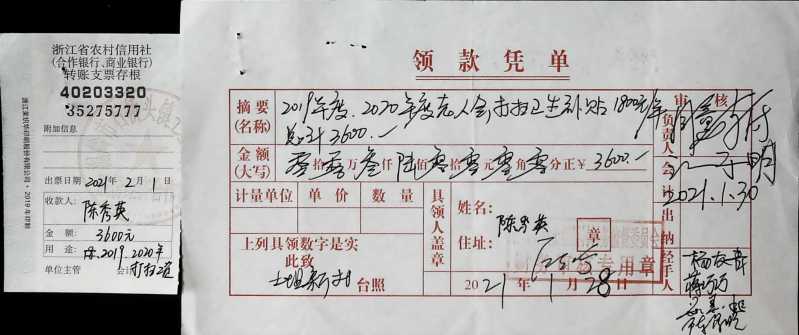 浙江省农村信用社
(合作银行、商业银行)
转账支票存根
40203320
35275777
附加信息
出票日期 2021年 2月 1日
收款人:
陈秀英
金 额: 3600元
用 途: 付2019.2020年
打扫卫生
单位主管 会计
浙江美浓华印刷股份有限公司·2019年印制
领款凭单
摘要
(名称)
2019年度、2020年度老人会打扫卫生补贴1800元/年
总计3600.—
金额
(大写)
零拾零万叁仟陆佰零拾零元零角零分正￥3600.—
计量单位 单价 数量
上列具领数字是实
此致
台照
具领人盖章
姓名:
陈秀英
住址:
章
2021年1月28日
审核
负责人
会计
2021.1.30
出纳
经手人
专用章